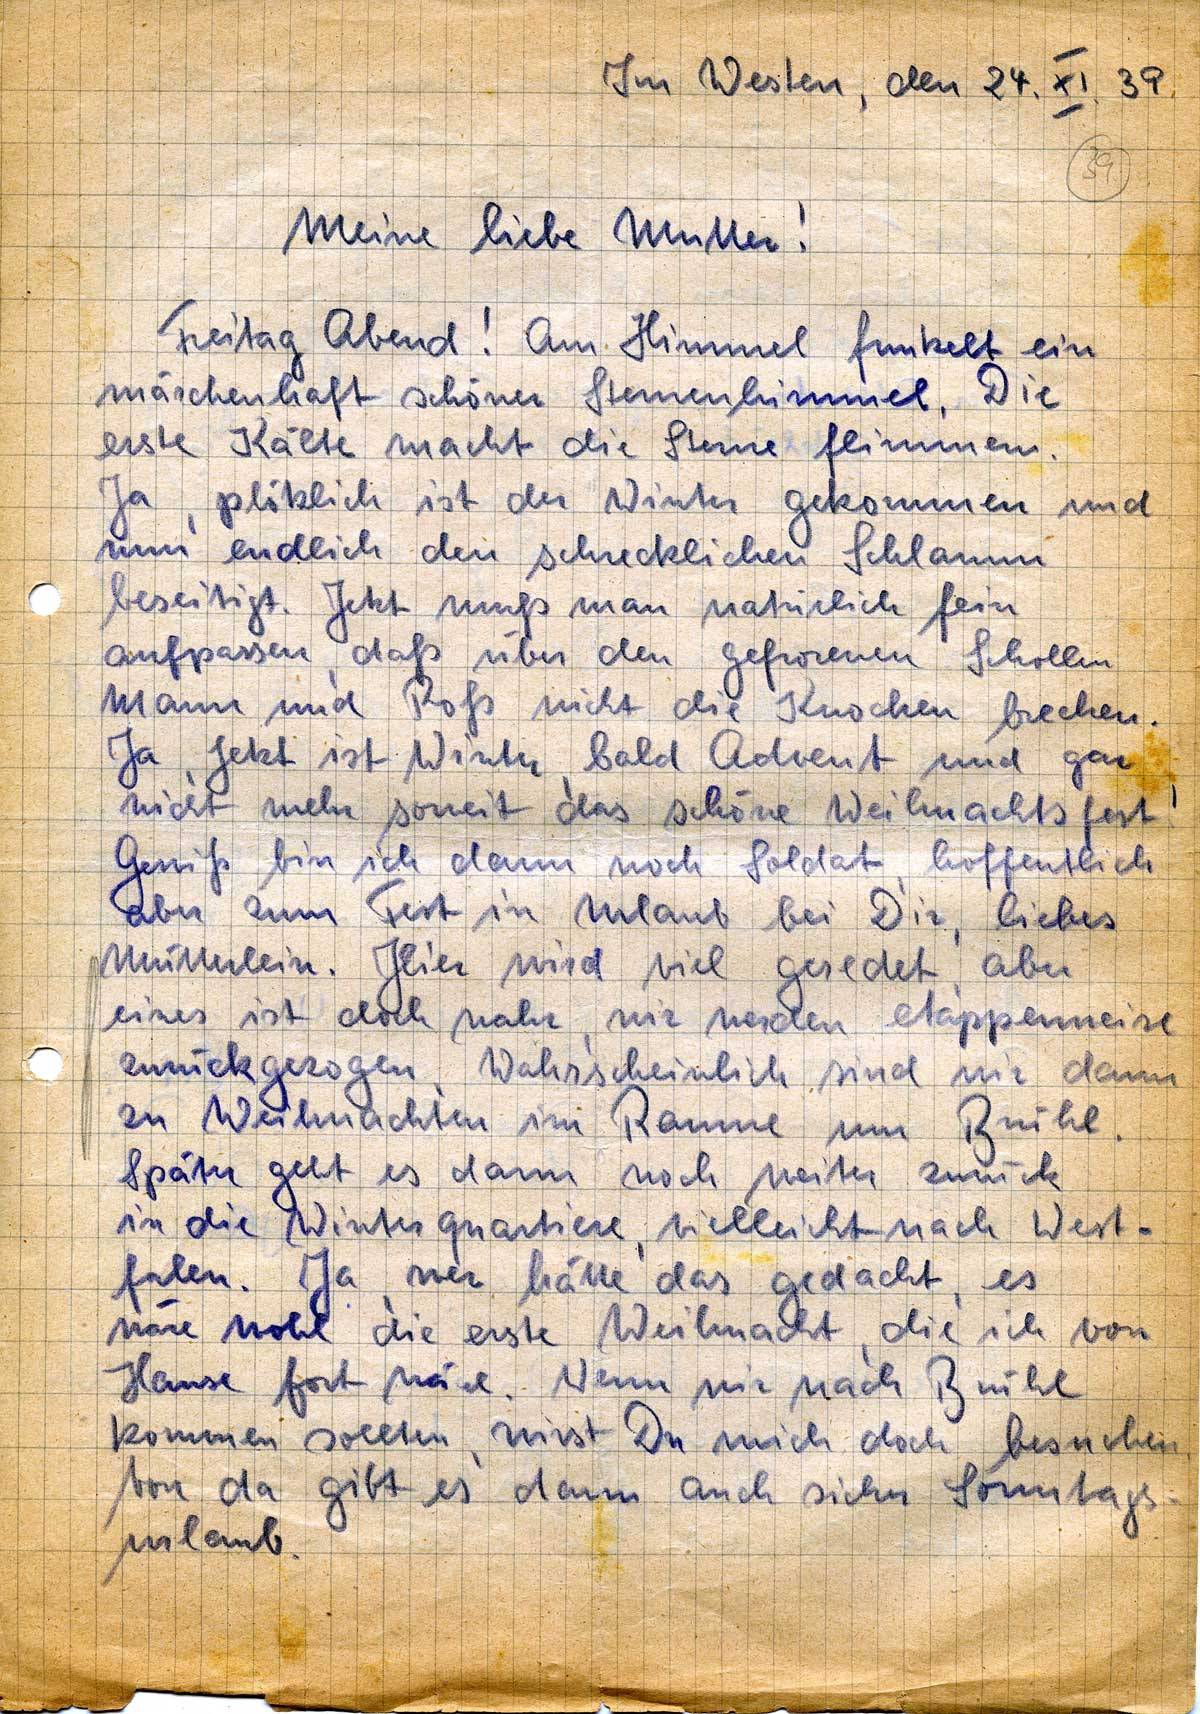 Im Westen, den 24. XI. 39.
39
Meine liebe Mutter!
Freitag Abend! Am Himmel funkelt ein
märchenhaft schöner Sternenhimmel. Die
erste Kälte macht die Sterne flimmern.
Ja, plötzlich ist der Winter gekommen und
nun endlich den schrecklichen Schlamm
beseitigt. Jetzt muß man natürlich fein
aufpassen, daß über den gefrorenen Schollen
Mann und Roß nicht die Knochen brechen.
Ja, jetzt ist Winter, bald Advent und gar
nicht mehr soweit das schöne Weihnachtsfest!
Gewiß bin ich dann noch Soldat, hoffentlich
aber zum Fest in Urlaub bei Dir, liebes
Mütterlein. Hier wird viel geredet, aber
eines ist doch wahr, wir werden etappenweise
zurückgezogen. Wahrscheinlich sind wir dann
zu Weihnachten im Raume um Brühl.
Später geht es dann noch weiter zurück
in die Winterquartiere, vielleicht nach West-
falen. Ja, wer hätte das gedacht, es
wäre wohl die erste Weihnacht, die ich von
Hause fort wäre. Wenn wir nach Brühl
kommen sollten, wirst Du mich doch besuchen
von da gibt es dann auch sicher Sonntags-
urlaub.